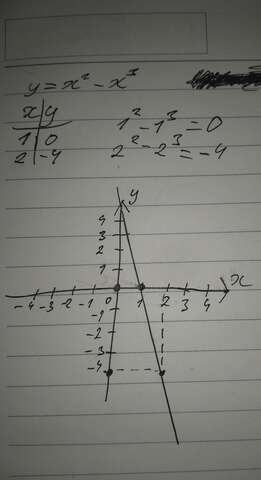 y = x² - x³
x | y
1 | 0
2 | -4
1² - 1³ = 0
2² - 2³ = -4
y
4
3
2
1
x
-4 -3 -2 -1 0 1 2 3 4
-1
-2
-3
-4